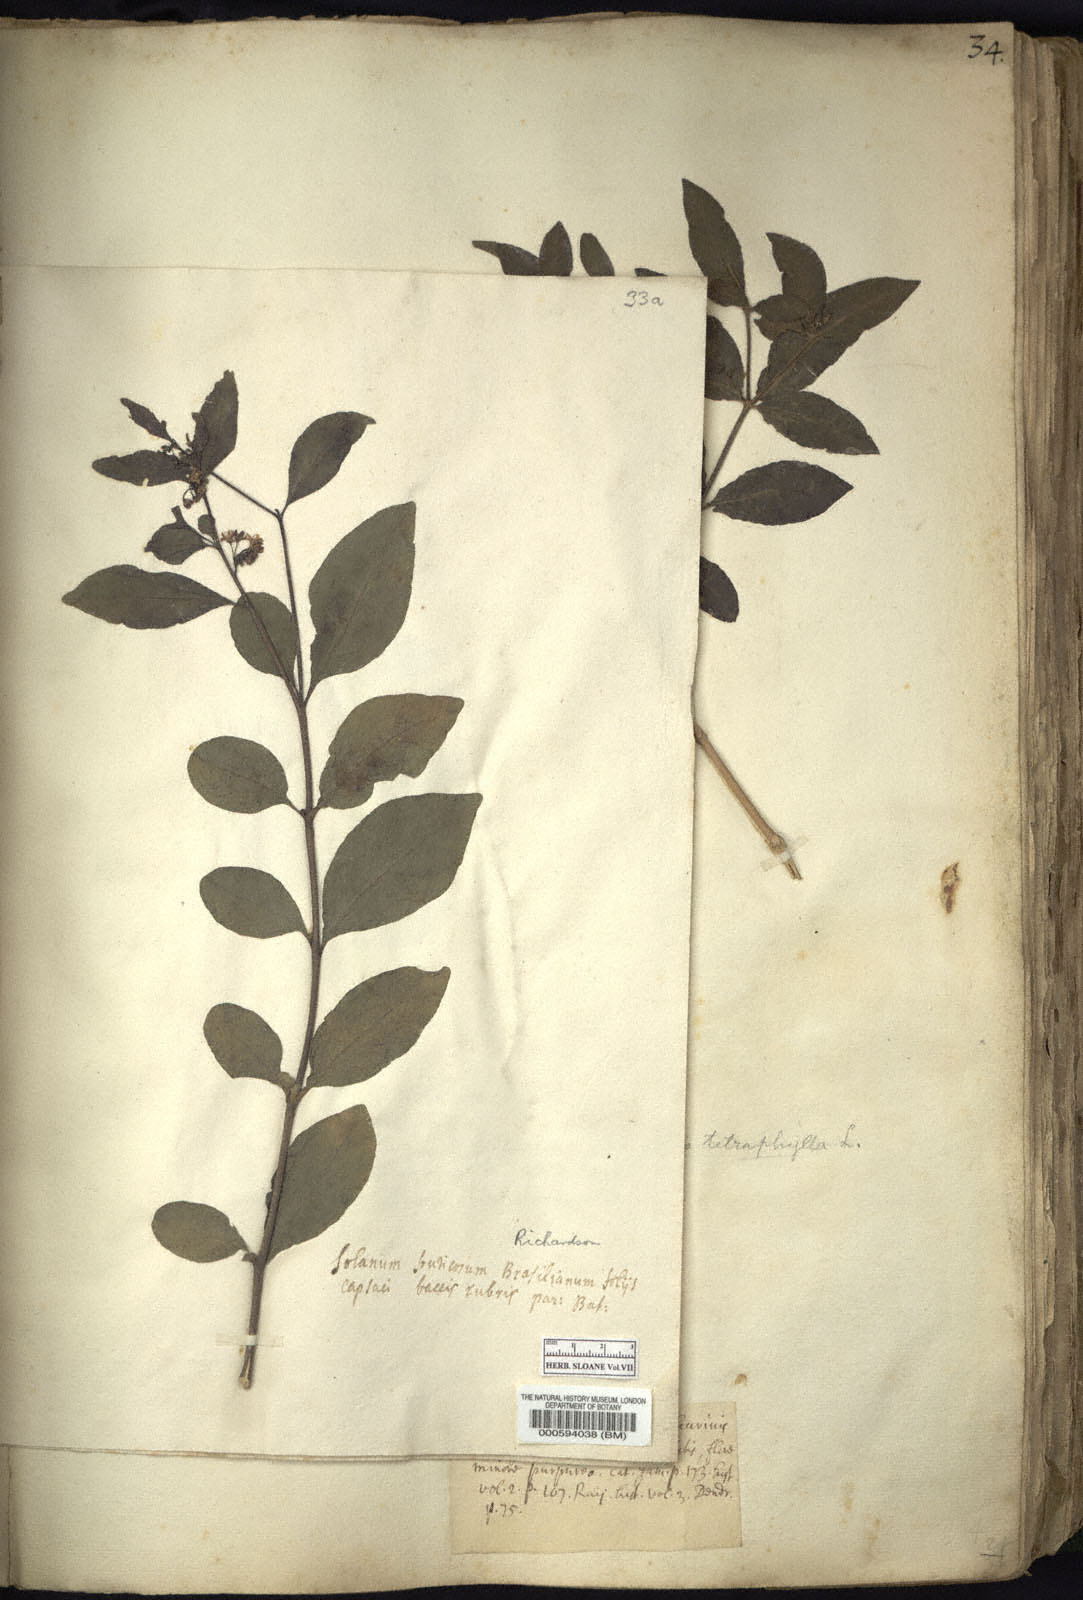 34.
33a
tetraphylla L.
Richardson
Solanum fruticosum Brasilianum folijs
capsici baccis rubris par: Bat:
mm 1 2 3
HERB. SLOANE Vol. VII
THE NATURAL HISTORY MUSEUM, LONDON
DEPARTMENT OF BOTANY
000594038 (BM)
flore
minore purpureo. Cat. Jam. p. 173. hist
vol. 2. p. 107. Raij. hist. vol. 3. Dendr.
p. 75.